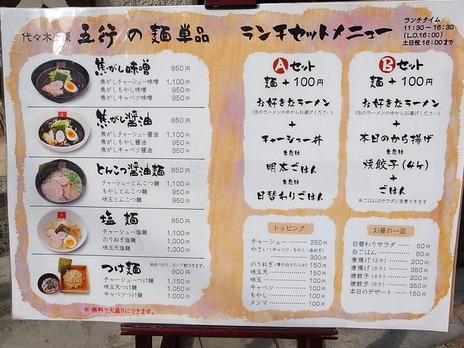 代々木上原 五行の麺単品
焦がし味噌 850円
焦がしチャーシュー味噌 1,100円
焦がしもやし味噌 950円
焦がしキャベツ味噌 950円
焦がし醤油 850円
焦がしチャーシュー醤油 1,100円
焦がしもやし醤油 950円
焦がしキャベツ醤油 950円
とんこつ醤油麺 850円
チャーシューとんこつ麺 1,100円
もやしとんこつ麺 950円
味玉とんこつ麺 950円
塩麺 850円
チャーシュー塩麺 1,100円
のりねぎ塩麺 1,000円
味玉天塩麺 1,000円
つけ麺 900円
チャーシューつけ麺 1,150円
味玉天つけ麺 1,050円
キャベツつけ麺 1,000円
※無料で大盛りにできます。
ランチセットメニュー
ランチタイム
11:30〜16:30
(L.O.16:00)
土日祝 16:00まで
Aセット
麺+100円
お好きなラーメン
(左のラーメンの中からお選びください)
+
チャーシュー丼
または
明太ごはん
または
日替わりごはん
Bセット
麺+100円
お好きなラーメン
(左のラーメンの中からお選びください)
+
本日のから揚げ
または
焼餃子(4ヶ)
+
ごはん
※ごはんはサラダに変更できます
トッピング
チャーシュー 250円
やさい(キャベツ・もやし・各わかめ)
300円
味玉天 150円
味玉 100円
キャベツ 100円
もやし 100円
メンマ 100円
お昼の一品
日替わりサラダ 50円
白ごはん
本日のデザート 150円